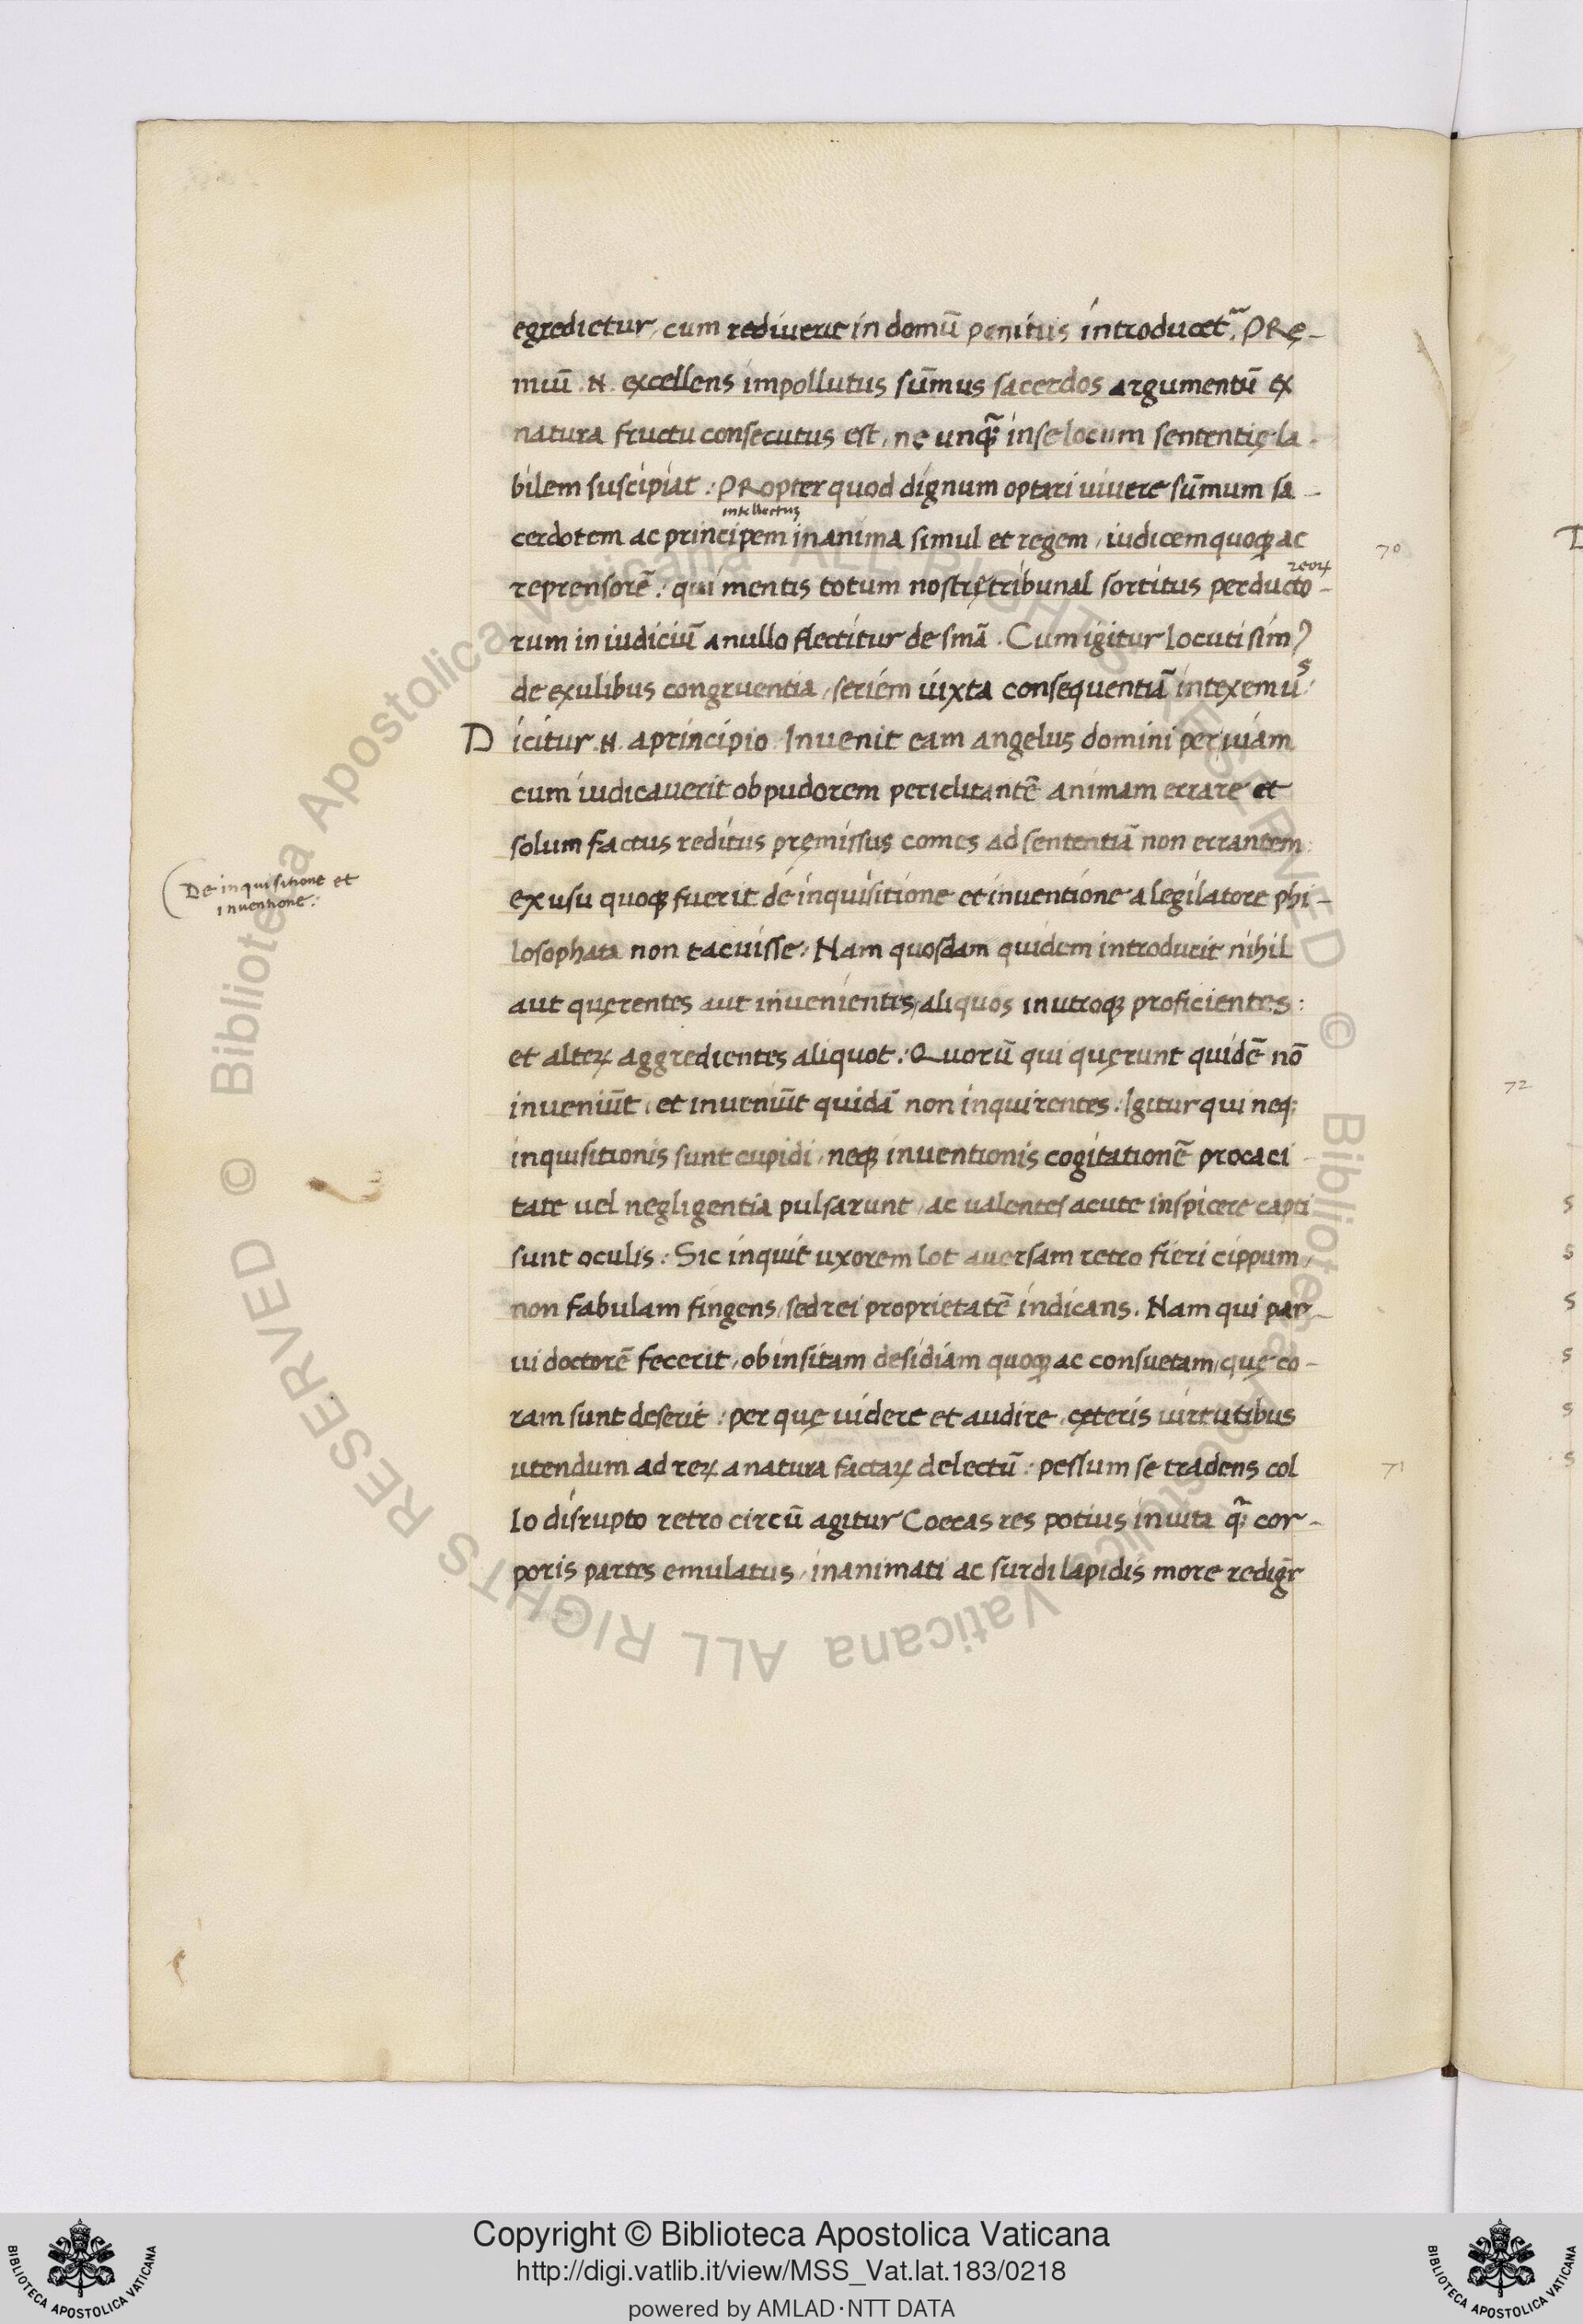 egredietur, cum rediverit in domū penitus introducet᷑. PRę-
miū .N. excellens impollutus sūmus sacerdos argumentū ex
natura fructu consecutus est, ne unqꝫ̃ in se locum sententię la-
bilem suscipiat: PRopter quod dignum optari uiuere sūmum sa-
intellectus
cerdotem ac principem in anima simul et regem, iudicem quoqꝫ ac
70
reoꝝ
reprensorē: qui mentis totum nostrę tribunal sortitus perducto-
rum in iudiciū a nullo flectitur de sm̄a. Cum igitur locuti simꝰ
de exulibus congruentia, seriem iuxta consequentiā intexemus:
Dicitur .N. a principio. Inuenit eam angelus domini per uiam
cum iudicauerit ob pudorem periclitantē animam errare et
solum factus reditus pręmissus comes ad sententiā non errantem:
De inquisitione et
inuentione:
ex usu quoqꝫ fuerit de inquisitione et inuentione a legilatore phi-
losophata non tacuisse: Nam quosdam quidem introducit nihil
aut quęrentes aut inuenientes, aliquos in utroqꝫ proficientes:
et alteꝝ aggredientes aliquot: Quorū qui quęrunt quidē nō
inueniūt, et inueniūt quidā non inquirentes: Igitur qui neqꝫ
inquisitionis sunt cupidi, neqꝫ inuentionis cogitationē procaci-
tate uel negligentia pulsarunt, ac ualentes acute inspicere capti
sunt oculis: Sic inquit uxorem lot auersam retro fieri cippum,
non fabulam fingens, sed rei proprietatē indicans. Nam qui par-
ui doctorē fecerit, ob insitam desidiam quoqꝫ ac consuetam, quę co-
ram sunt deserit: per quę uidere et audire, cęteris uirtutibus
utendum ad reꝝ a natura factaꝝ delectū: pessum se tradens col
71
lo disrupto retro circū agitur Coecas res potius in uita qꝫ̃ cor-
poris partes emulatus, inanimati ac surdi lapidis more redigr̄
72
Copyright © Biblioteca Apostolica Vaticana
http://digi.vatlib.it/view/MSS_Vat.lat.183/0218
powered by AMLAD·NTT DATA
BIBLIOTECA APOSTOLICA VATICANA
BIBLIOTECA APOSTOLICA VATICANA
© Biblioteca Apostolica Vaticana ALL RIGHTS RESERVED
© Biblioteca Apostolica Vaticana ALL RIGHTS RESERVED